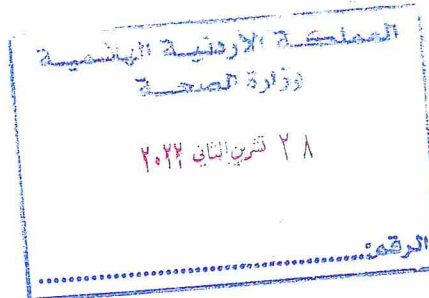 المملكة الاردنية الهاشمية
وزارة الصحة
٢٨ تشرين الثاني ٢٠٢٢
الرقم:......................................................